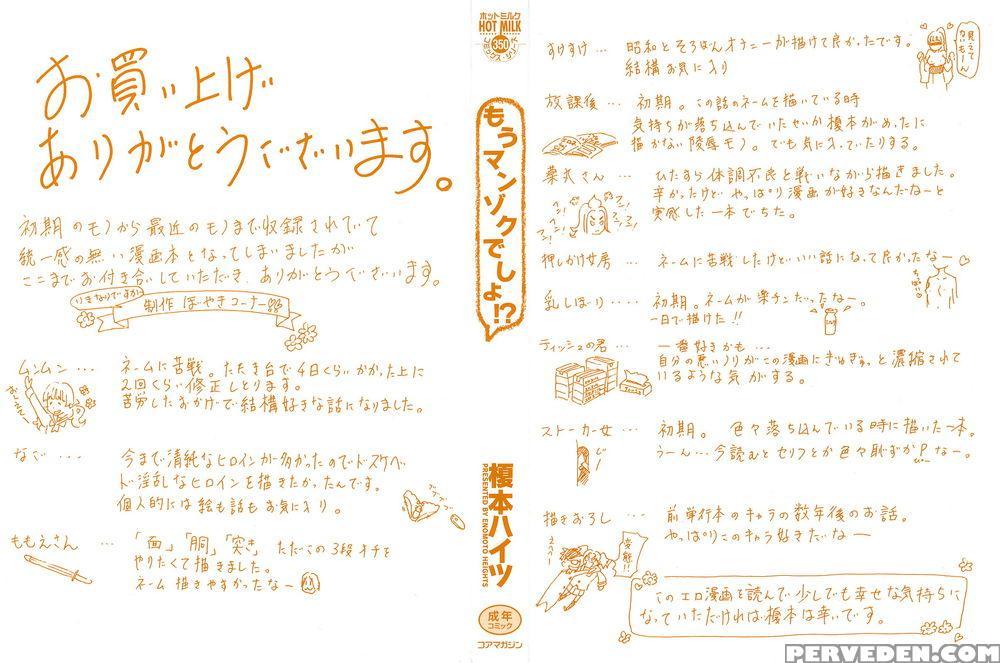 お買い上げ
ありがとうございます。
初期のモノから最近のモノまで収録されていて
統一感の無い漫画本となってしまいましたが
ここまでお付き合いしていただき、ありがとうございます。
いきなりですが
制作ぼやきコーナー
ムンムン…
ネームに苦戦。たたき台で4日くらいかかった上に
2回くらい修正しとります。
苦労したおかげで結構好きな話になりました。
なご…
今まで清純なヒロインが多かったのでドスケベ
ド淫乱なヒロインを描きたかったんです。
個人的には絵も話もお気に入り。
ももえさん…
「面」「胴」「突き」ただこの3段オチを
やりたくて描きました。
ネーム描きやすかったなー
ホットミルク
HOT MILK
350
もうマンゾクでしょ!?
榎本ハイツ
PRESENTED BY ENOMOTO HEIGHTS
成年
コミック
コアマガジン
すけすけ…
昭和とそろばんオナニーが描けて良かったです。
結構お気に入り
見えてないもーん
放課後…
初期。この話のネームを描いている時
気持ちが落ち込んでいたせいか榎本がめったに
描かない陵辱モノ。でも気に入っていたりする。
薬爪さん…
ひたすら体調不良と戦いながら描きました。
辛かったけどやっぱり漫画が好きなんだねーと
実感した一本でちた。
押しかけ女房…
ネームに苦戦したけどいい話になって良かったなー
乳しぼり…
初期。ネームが楽チンだったなー。
一日で描けた!!
ティッシュの君…
一番好きかも…
自分の悪いノリがこの漫画にぎゅぎゅっと濃縮されて
いるような気がする。
ストーカー女…
じー
初期。色々落ち込んでいる時に描いた一本。
うーん…今読むとセリフとか色々恥ずかしぃなー。
描きおろし…
変態!!
前単行本のキャラの数年後のお話。
やっぱりこのキャラ好きだなー
このエロ漫画を読んで少しでも幸せな気持ちに
なっていただければ榎本は幸いです。
PERVEDEN.COM